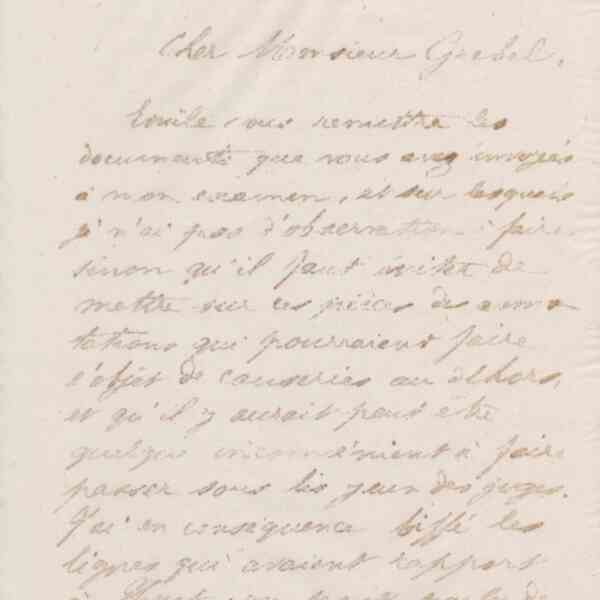 Cher Monsieur Goebel,
Emile vous remettra les
documents que vous avez envoyés
à mon examen, et sur lesquels
je n'ai pas d'observation à faire
sinon qu'il faut éviter de
mettre sur ces pièces des anno-
tations qui pourraient faire
l'objet de causeries au dehors,
et qu'il y aurait peut être
quelque inconvénient à faire
passer sous les yeux des juges.
J'ai en conséquence biffé les
lignes qui avaient rapport
à